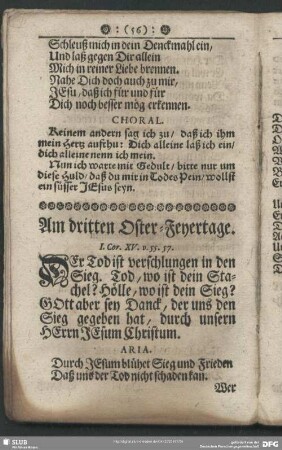 : (56) :
Schleuß mich in dein Denckmahl ein,
Und laß gegen Dir allein
Mich in reiner Liebe brennen.
Nahe Dich doch auch zu mir,
JEsu, daß ich für und für
Dich noch besser mög erkennen.
CHORAL.
Keinem andern sag ich zu, daß ich ihm
mein Hertz aufthu: Dich alleine laß ich ein,
dich alleine nenn ich mein.
Nun ich warte mit Gedult, bitte nur um
diese Huld, daß du mir in Todes Pein, wollst
ein süsser JEsus seyn.
Am dritten Oster-Feyertage.
I. Cor. XV. v. 55. 57.
DEr Tod ist verschlungen in den
Sieg. Tod, wo ist dein Sta-
chel? Hölle, wo ist dein Sieg?
GOtt aber sey Danck, der uns den
Sieg gegeben hat, durch unsern
HErrn JEsum Christum.
ARIA.
Durch JEsum blühet Sieg und Frieden
Daß uns der Tod nicht schaden kan.
Wer
SLUB
DFG